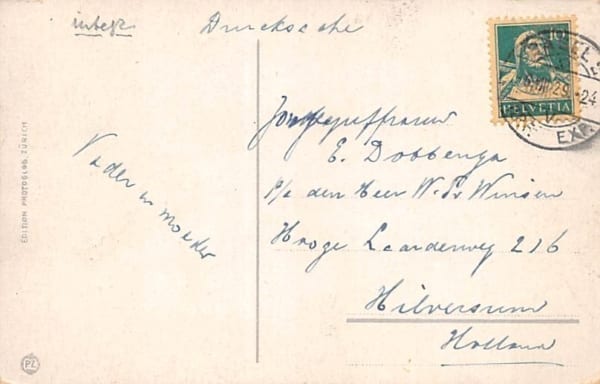 Drucksache
10
HELVETIA
BASEL
24
EXP.
Jongejuffrouw
E. Dobbenga
p/a den Heer W. Winsen
Hooge Laarderweg 216
Hilversum
Holland
Vader en moeder
EDITION PHOTOGLOB, ZÜRICH
PZ